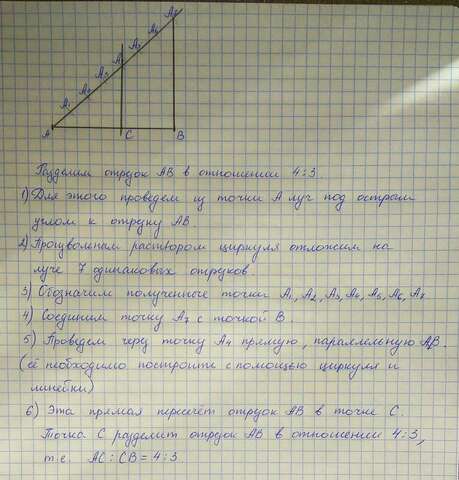 A A₁ A₂ A₃ A₄ A₅ A₆ A₇
C B
Разделим отрезок AB в отношении 4:3
1) Для этого проведем из точки A луч под острым
углом к отрезку AB.
2) Произвольным раствором циркуля отложим на
луче 7 одинаковых отрезков.
3) Обозначим полученные точки A₁, A₂, A₃, A₄, A₅, A₆, A₇
4) Соединим точку A₇ с точкой B.
5) Проведем через точку A₄ прямую, параллельную A₇B.
(её необходимо построить с помощью циркуля и
линейки)
6) Эта прямая пересечёт отрезок AB в точке C.
Точка C разделит отрезок AB в отношении 4:3,
т.е. AC:CB = 4:3.